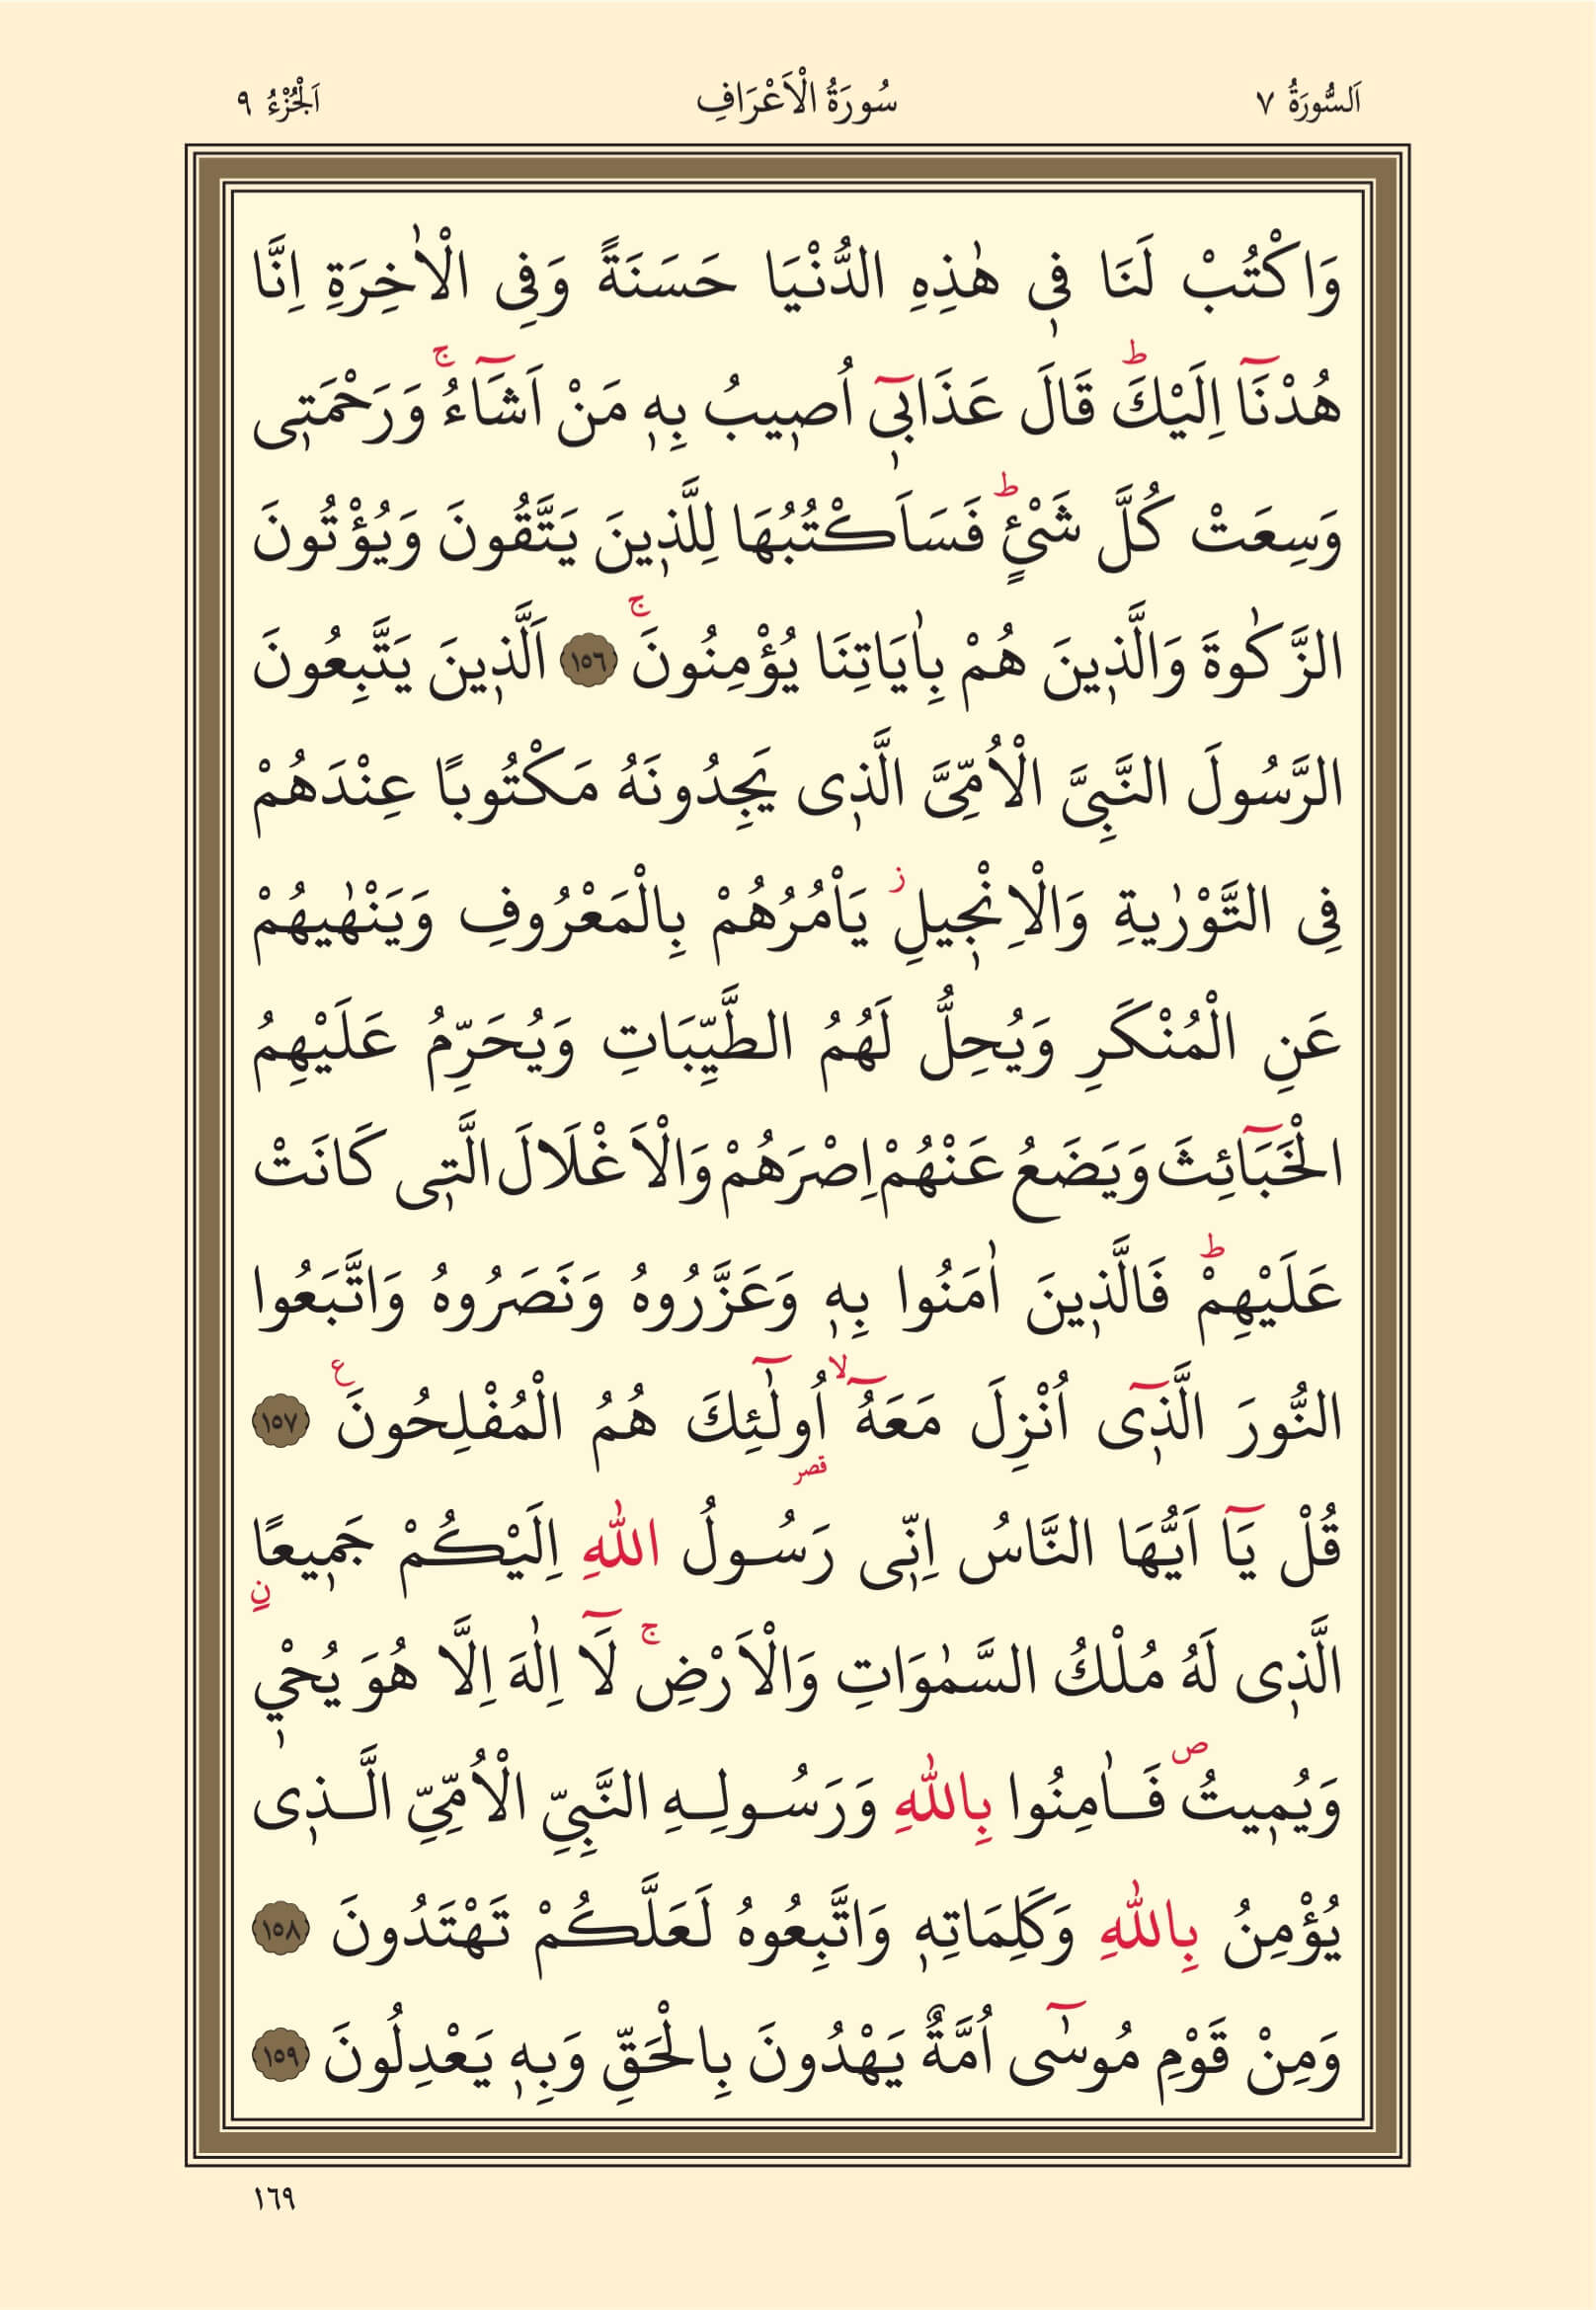 اَلسُّورَةُ ٧ سُورَةُ الْاَعْرَافِ اَلْجُزْءُ ٩
وَاكْتُبْ لَنَا ف۪ي هٰذِهِ الدُّنْيَا حَسَنَةً وَفِي الْاٰخِرَةِ اِنَّا
هُدْنَٓا اِلَيْكَۜ قَالَ عَذَاب۪ٓي اُص۪يبُ بِه۪ مَنْ اَشَٓاءُۚ وَرَحْمَت۪ي
وَسِعَتْ كُلَّ شَيْءٍۜ فَسَاَكْتُبُهَا لِلَّذ۪ينَ يَتَّقُونَ وَيُؤْتُونَ
الزَّكٰوةَ وَالَّذ۪ينَ هُمْ بِاٰيَاتِنَا يُؤْمِنُونَۚ ١٥٦ اَلَّذ۪ينَ يَتَّبِعُونَ
الرَّسُولَ النَّبِيَّ الْاُمِّيَّ الَّذ۪ي يَجِدُونَهُ مَكْتُوبًا عِنْدَهُمْ
فِي التَّوْرٰيةِ وَالْاِنْج۪يلِۘ يَاْمُرُهُمْ بِالْمَعْرُوفِ وَيَنْهٰيهُمْ
عَنِ الْمُنْكَرِ وَيُحِلُّ لَهُمُ الطَّيِّبَاتِ وَيُحَرِّمُ عَلَيْهِمُ
الْخَبَٓائِثَ وَيَضَعُ عَنْهُمْ اِصْرَهُمْ وَالْاَغْلَالَ الَّت۪ي كَانَتْ
عَلَيْهِمْۜ فَالَّذ۪ينَ اٰمَنُوا بِه۪ وَعَزَّرُوهُ وَنَصَرُوهُ وَاتَّبَعُوا
النُّورَ الَّذ۪ٓي اُنْزِلَ مَعَهُٓۙ اُو۬لٰٓئِكَ هُمُ الْمُفْلِحُونَ۟ ١٥٧
قصر
قُلْ يَٓا اَيُّهَا النَّاسُ اِنّ۪ي رَسُولُ اللّٰهِ اِلَيْكُمْ جَم۪يعًاۨ
الَّذ۪ي لَهُ مُلْكُ السَّمٰوَاتِ وَالْاَرْضِۚ لَٓا اِلٰهَ اِلَّا هُوَ يُحْي۪
وَيُم۪يتُۖ فَاٰمِنُوا بِاللّٰهِ وَرَسُولِهِ النَّبِيِّ الْاُمِّيِّ الَّذ۪ي
يُؤْمِنُ بِاللّٰهِ وَكَلِمَاتِه۪ وَاتَّبِعُوهُ لَعَلَّكُمْ تَهْتَدُونَ ١٥٨
وَمِنْ قَوْمِ مُوسٰٓى اُمَّةٌ يَهْدُونَ بِالْحَقِّ وَبِه۪ يَعْدِلُونَ ١٥٩
١٦٩